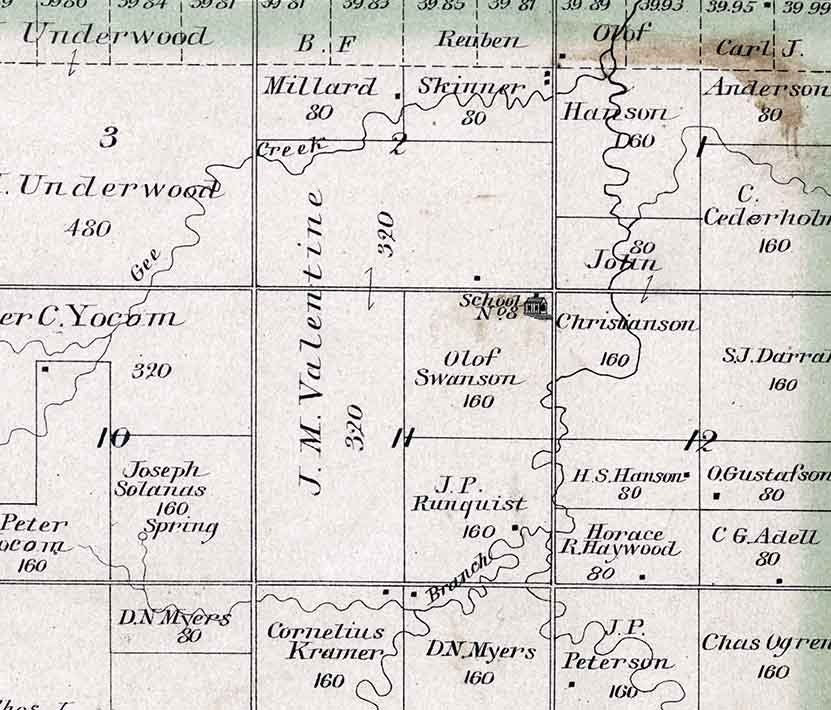 39.86 39.84 39.81 39.81 39.83 39.85 39.87 39.89 39.93 39.95 39.99
Underwood
B. F
Reuben
Olof
Carl J.
Millard
80
Skinner
80
Hanson
160
Anderson
80
3
Creek
2
1
Underwood
480
C.
Cederholm
160
Gee
320
80
John
School
No 8
er C. Yocom
320
J. M. Valentine
320
Olof
Swanson
160
Christianson
160
S.J. Darrah
160
10
11
12
Joseph
Solanas
160
Spring
J. P.
Runquist
160
H. S. Hanson
80
O. Gustafson
80
Peter
ocom
160
Horace
R. Haywood
80
C G. Adell
80
Branch
D. N Myers
80
Cornelius
Kramer
160
D. N. Myers
160
J. P.
Peterson
160
Chas Ogren
160